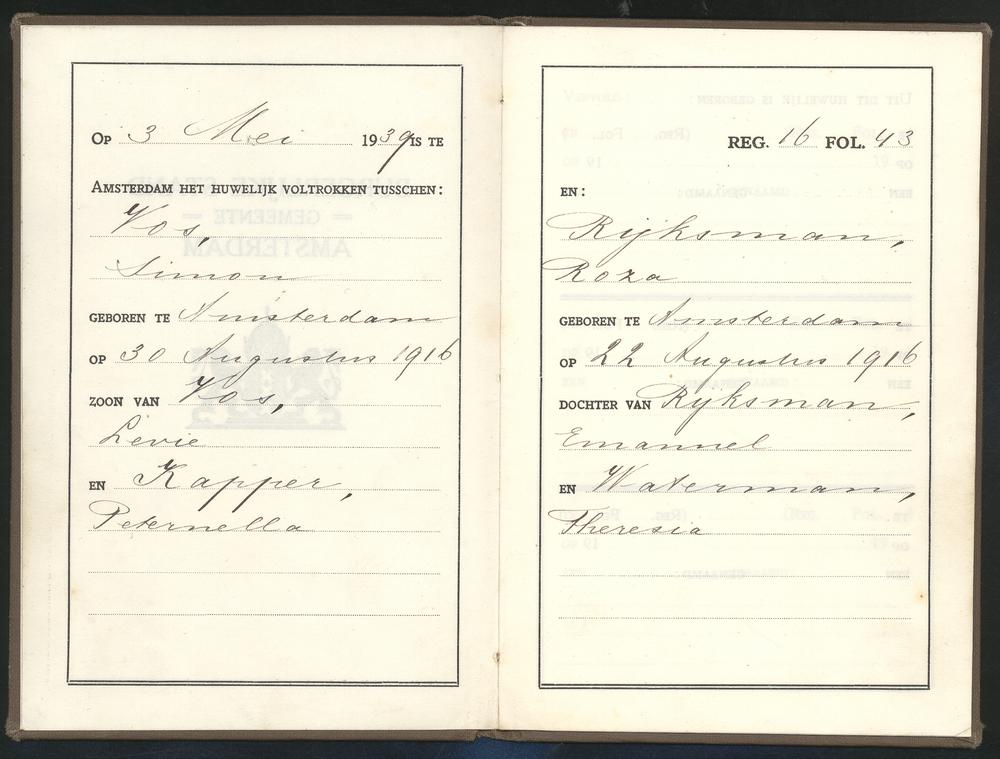 Op 3 Mei 1939 is te
Amsterdam het huwelijk voltrokken tusschen:
Vos,
Simon
geboren te Amsterdam
op 30 Augustus 1916
zoon van Vos,
Levie
en Kapper,
Peternella
Reg. 16 Fol. 43
en:
Rijksman,
Roza
geboren te Amsterdam
op 22 Augustus 1916
dochter van Ryksman,
Emanuel
en Waterman,
Theresia